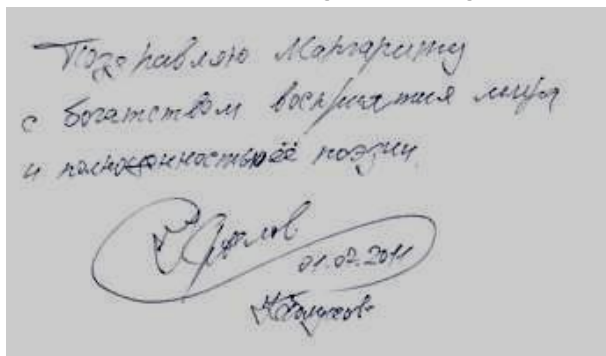 Поздравляю Маргариту
с богатством восприятия мира
и полноценностью её поэзии
01.02.2011